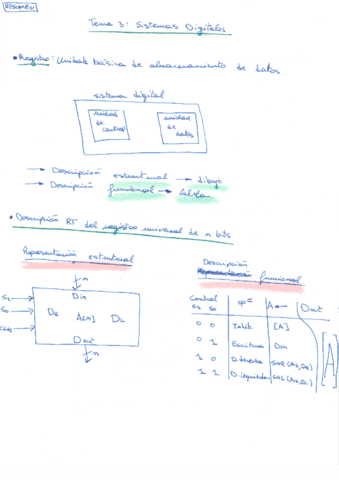 RESUMEN
Tema 3: Sistemas Digitales
• Registro: Unidad básica de almacenamiento de datos
sistema digital
unidad de control
unidad de datos
→ Descripción estructural → dibujo
→ Descripción funcional → tabla
• Descripción RT del registro universal de n bits
Representación estructural
Descripción funcional
n
S1
S0
CLK
Din
DR A[n] DL
Dout
n
Control
S1 S0 op A ← Dout =
0 0 Inhib. [A]
0 1 Escritura Din
1 0 D.derecha SHR(A, DR)
1 1 D.izquierda SHL(A, DL)
[A]